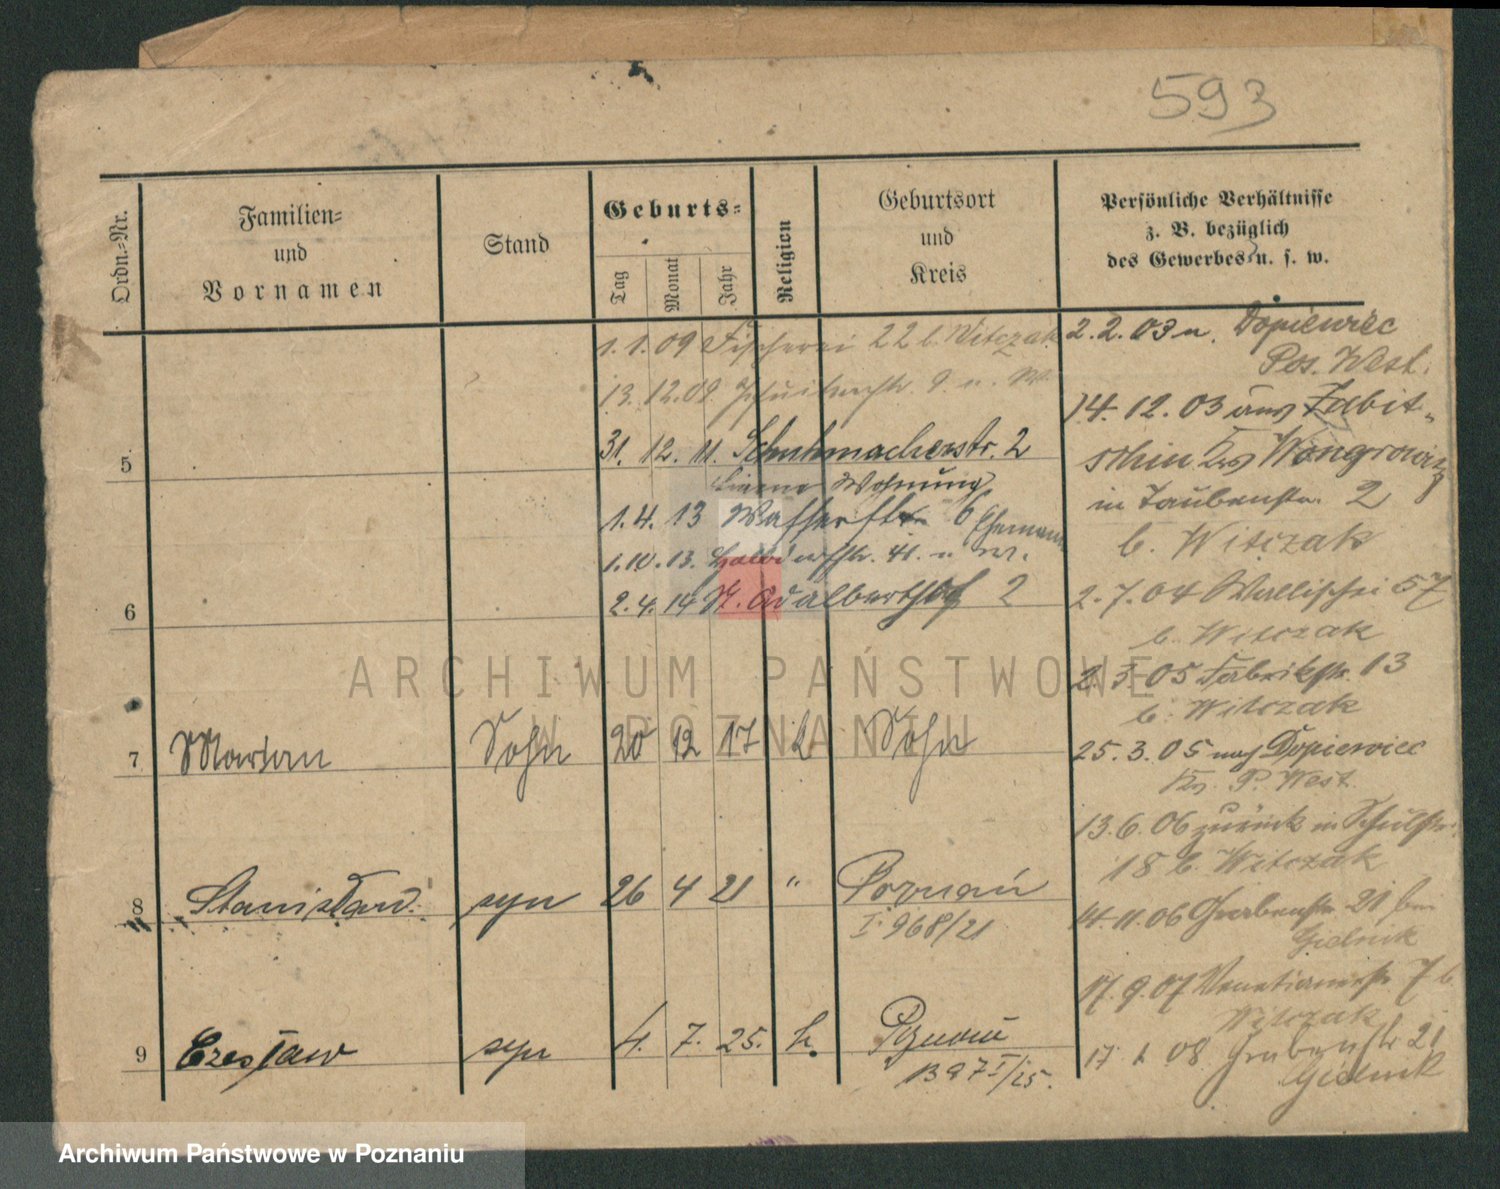 593
Ordn.-Nr.
Familien-
und
Vornamen
Stand
Geburts-
Tag
Monat
Jahr
Religion
Geburtsort
und
Kreis
Persönliche Verhältnisse
z. B. bezüglich
des Gewerbes u. s. w.
1.1.09 Fischerei 22 b. Witczak
13.12.09
5 31. 12. 11. Schuhmacherstr. 2
Wohnung
1.4.13 Wasserstr. 6 Ehemann
1.10.13.
6 2.4.14 St. Adalberthof 2
7 Marian Sohn 20 12 17 k Sohn
8 Stanisław syn 26 4 21 " Poznań
I 968/21
9 Czesław syn 4. 7. 25. k. Poznań
1397 I/25.
2.2.03 n. Dopiewiec
Pos. West.
14.12.03 aus Zabit-
schin Krs Wongrowitz
in Taubenstr. 2
b. Witczak
2.7.04 Wallischei 57
b. Witczak
2.3.05 Fabrikstr. 13
b. Witczak
25.3.05 nach Dopiewiec
Krs. P. West.
13.6.06 zurück in Schulstr.
18 b. Witczak
14.11.06 Grabenstr. 21 bei
Gielnik
17.9.07 Venetianerstr. 7 b
Witczak
17. 1. 08 Grabenstr. 21
Gielnik
ARCHIWUM PAŃSTWOWE
W POZNANIU
Archiwum Państwowe w Poznaniu